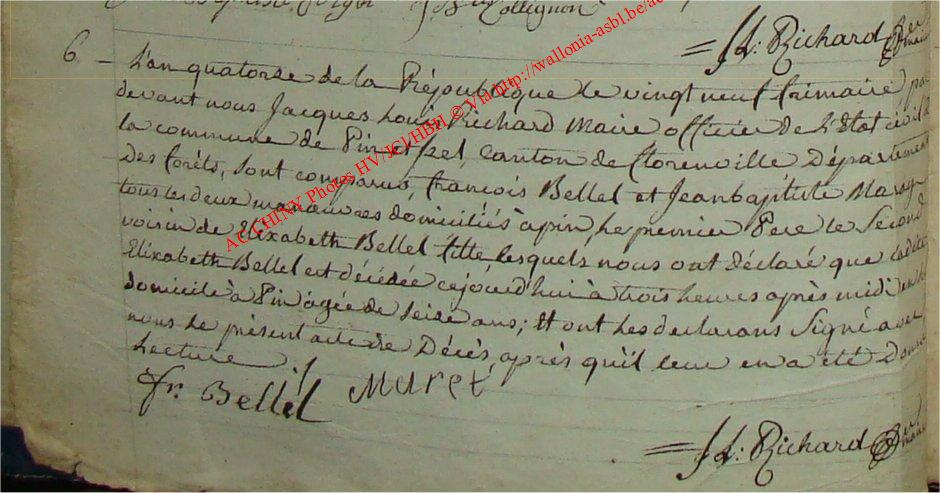 Collignon
= J L: Richard
maire
6 – L'an quatorze de la République le vingt neuf frimaire par
devant nous Jacques Louis Richard Maire officier de l'Etat civil de
la commune de Pin et Izel, Canton de florenville Département
des forêts, sont comparus, françois Bellel et Jeanbaptiste
tous les deux manœuvres domiciliés à pin, Le premier Pere le Second
voisin de Elizabeth Bellel fille lesquels nous ont déclaré que ladite
Elizabeth Bellel est décédée cejourd'hui à trois heures après midi en
domicile à Pin âgée de seize ans; Et ont Les declarans Signé avec
nous Le présent acte de Décès après qu'il leur en a été donné
Lecture ./.
fr. Bellel Maret
= J L: Richard
maire
ACCHINY Photos HV/JCl/HBH © Via http://wallonia-asbl.be/ac